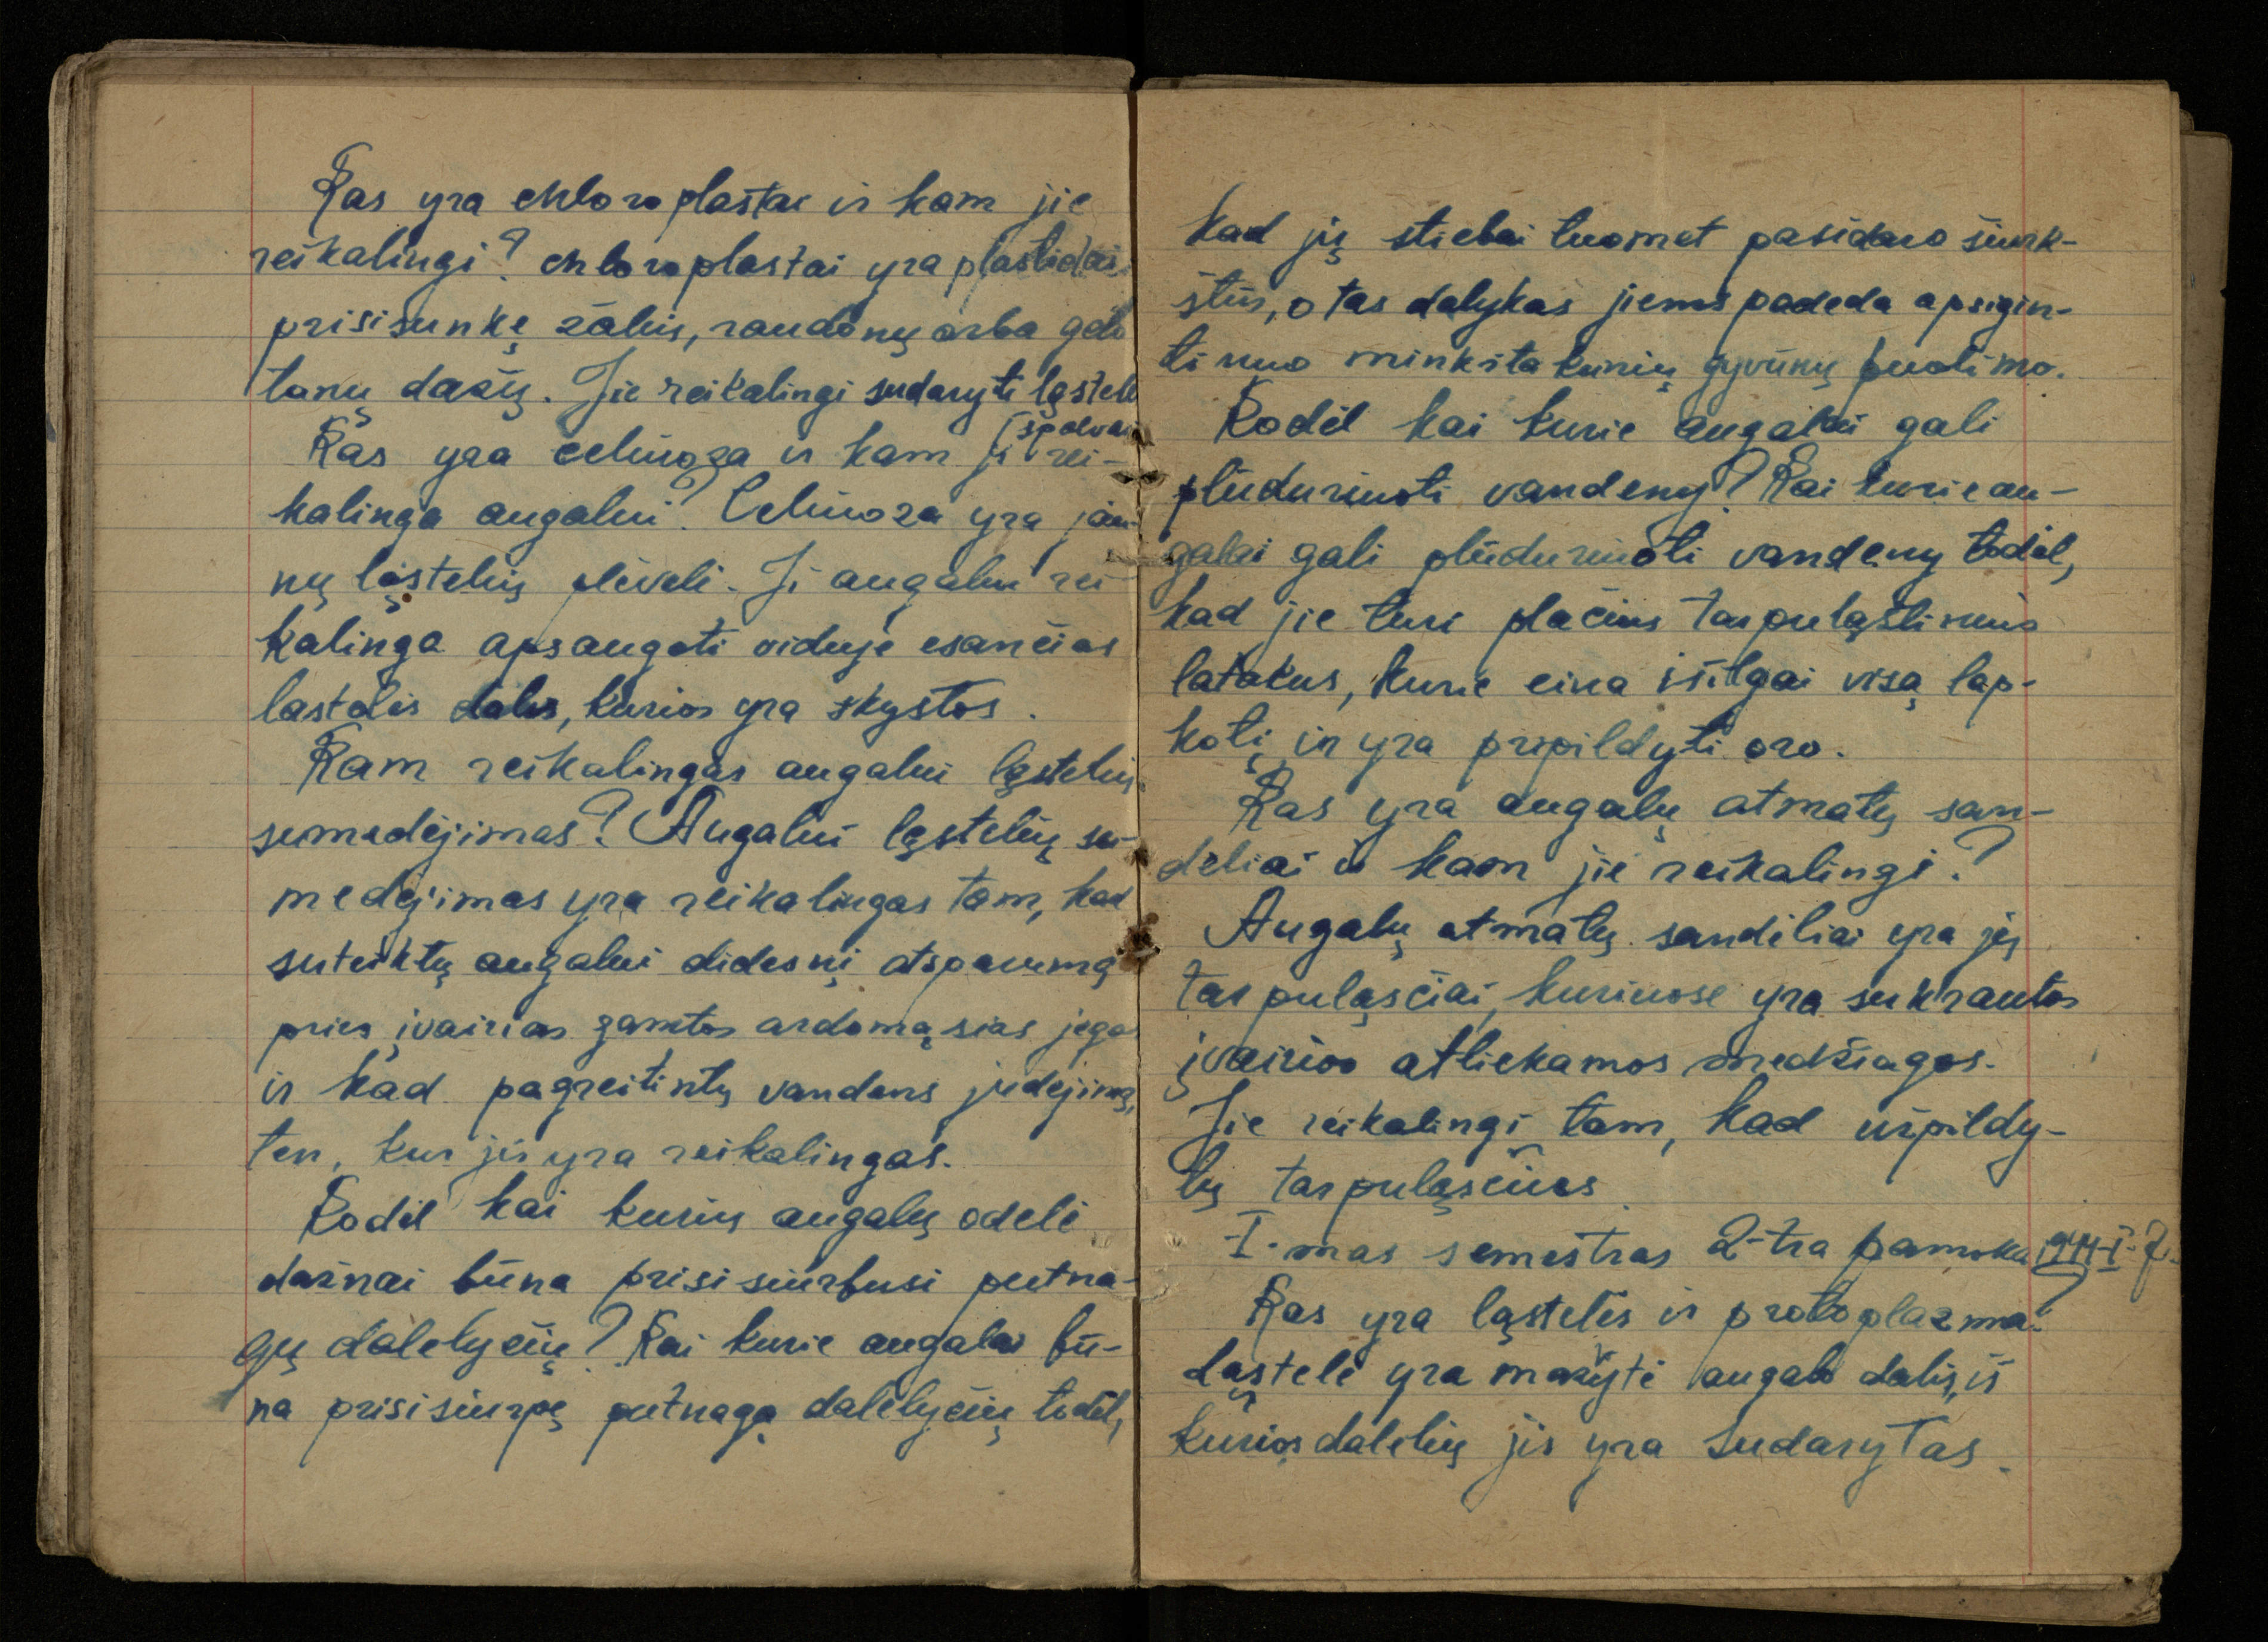 Kas yra chloroplastai ir kam jie
reikalingi? chloroplastai yra plastidai
prisisunkę žalių, raudonų arba gelto
tonų dažų. Jie reikalingi sudaryti ląstelė
spalvai
Kas yra celiuoza ir kam ji rei-
kalinga augalui? Celiuoza yra jau-
nų ląstelių plėvelė. Ji augalui rei-
kalinga apsaugoti viduje esančias
lastelės dalis, kurios yra skystos.
Kam reikalingas augalui ląstelių
sumedėjimas? Augalui ląstelių su-
medėjimas yra reikalingas tam, kad
suteiktų augalui didesnį atsparumą
prieš įvairias gamtos ardomąsias jėgas
ir kad pagreitintų vandens judėjimą,
ten, kur jis yra reikalingas.
Kodėl kai kurių augalų odelė
dažnai būna prisisiurbusi putna-
gų dalelyčių? Kai kurie augalai bū-
na prisisiurpę putnagą dalelyčių todėl,
kad jų stiebai tuomet pasidaro šiurk-
štūs, o tas dalykas jiems padeda apsigin-
ti nuo minkštakūnių gyvūnų puolimo.
Kodėl kai kurie augalai gali
plūduriuoti vandeny? Kai kurie au-
galai gali plūduriuoti vandeny todėl,
kad jie turi plačius tarpuląstinius
latakus, kurie eina išilgai visą lap-
kotį ir yra pripildyti oro.
Kas yra augalų atmatų san-
dėliai ir kam jie reikalingi?
Augalų atmatų sandėliai yra jų
tarpuląsčiai, kuriuose yra sukrautos
įvairios atliekamos medžiagos.
Jie reikalingi tam, kad užpildy-
tų tarpuląsčius.
I-mas semestras 2-tra pamoka 1944-I-7.
Kas yra ląstelės ir protoplazma?
Ląstelė yra mažytė augalo dalis, iš
kurios dalelių jis yra sudarytas.